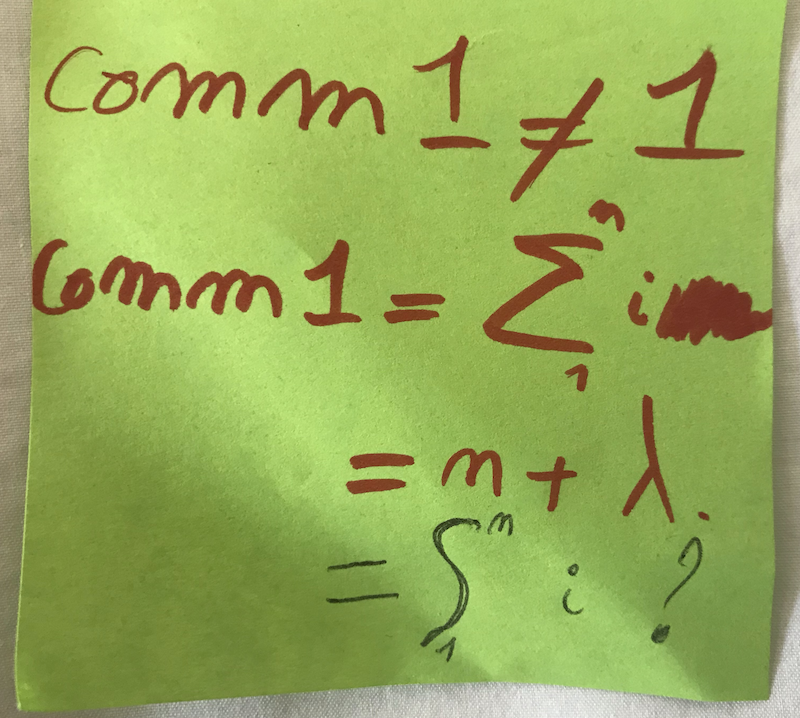 Comm 1 ≠ 1
Comm 1 = ∑₁ⁿ i
= n + λ.
= ∫₁ⁿ i ?